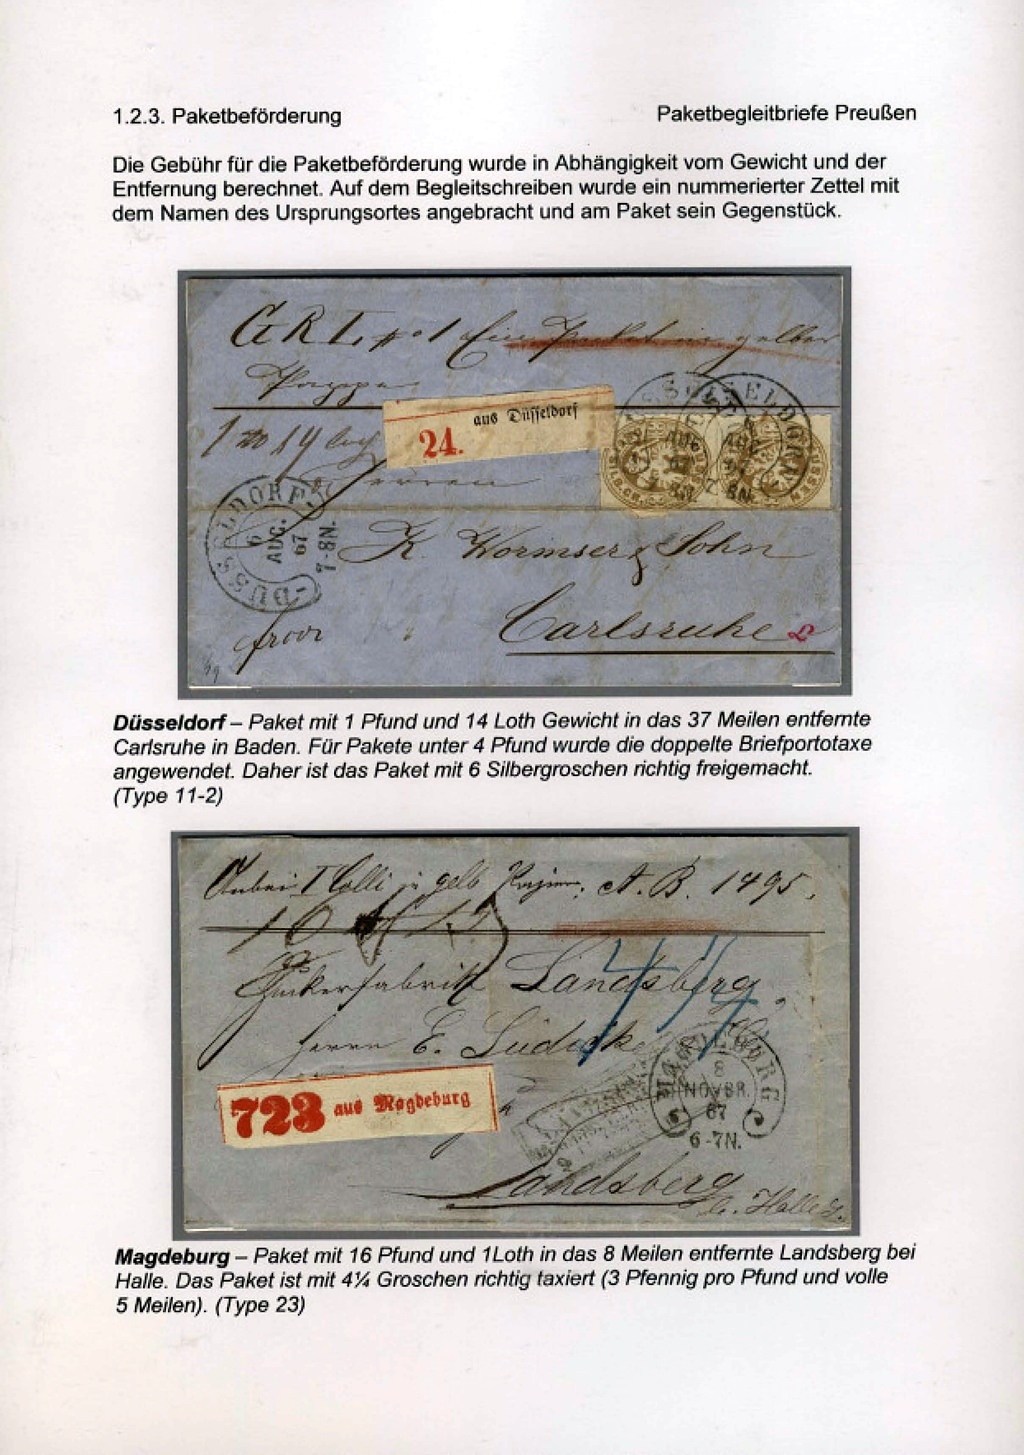 1.2.3. Paketbeförderung
Paketbegleitbriefe Preußen
Die Gebühr für die Paketbeförderung wurde in Abhängigkeit vom Gewicht und der
Entfernung berechnet. Auf dem Begleitschreiben wurde ein nummerierter Zettel mit
dem Namen des Ursprungsortes angebracht und am Paket sein Gegenstück.
24. aus Düsseldorf
DUSSELDORF
6
AUG.
67
7-8N.
K. Wormser & Sohn
Carlsruhe
Düsseldorf – Paket mit 1 Pfund und 14 Loth Gewicht in das 37 Meilen entfernte
Carlsruhe in Baden. Für Pakete unter 4 Pfund wurde die doppelte Briefportotaxe
angewendet. Daher ist das Paket mit 6 Silbergroschen richtig freigemacht.
(Type 11-2)
A.B. 1495.
Zuckerfabrik Landsberg
Herrn E. Lüdecke
723 aus Magdeburg
MAGDEBURG
8
NOVBR.
67
6-7N.
Landsberg
b. Halle
Magdeburg – Paket mit 16 Pfund und 1Loth in das 8 Meilen entfernte Landsberg bei
Halle. Das Paket ist mit 4¼ Groschen richtig taxiert (3 Pfennig pro Pfund und volle
5 Meilen). (Type 23)